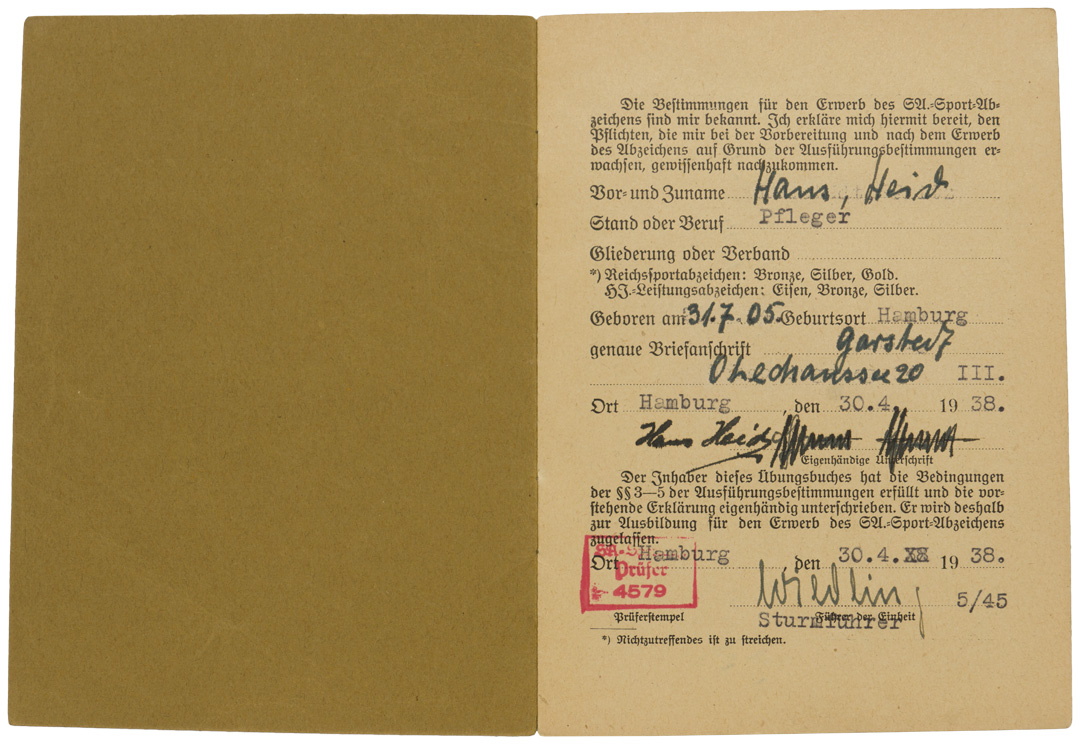 Die Bestimmungen für den Erwerb des SA.-Sport-Ab-
zeichens sind mir bekannt. Ich erkläre mich hiermit bereit, den
Pflichten, die mir bei der Vorbereitung und nach dem Erwerb
des Abzeichens auf Grund der Ausführungsbestimmungen er-
wachsen, gewissenhaft nachzukommen.
Vor- und Zuname Hans, Heid
Stand oder Beruf Pfleger
Gliederung oder Verband
*) Reichssportabzeichen: Bronze, Silber, Gold.
HJ.-Leistungsabzeichen: Eisen, Bronze, Silber.
Geboren am 31.7.05. Geburtsort Hamburg
genaue Briefanschrift Garstedt
Ohechaussee 20 III.
Ort Hamburg, den 30.4. 19 38.
Hans Heid
Eigenhändige Unterschrift
Der Inhaber dieses Übungsbuches hat die Bedingungen
der §§ 3—5 der Ausführungsbestimmungen erfüllt und die vor-
stehende Erklärung eigenhändig unterschrieben. Er wird deshalb
zur Ausbildung für den Erwerb des SA.-Sport-Abzeichens
zugelassen.
Ort Hamburg, den 30.4. 19 38.
SA.-
Prüfer
4579
Wiedling 5/45
Prüferstempel Führer der Einheit
Sturmführer
*) Nichtzutreffendes ist zu streichen.